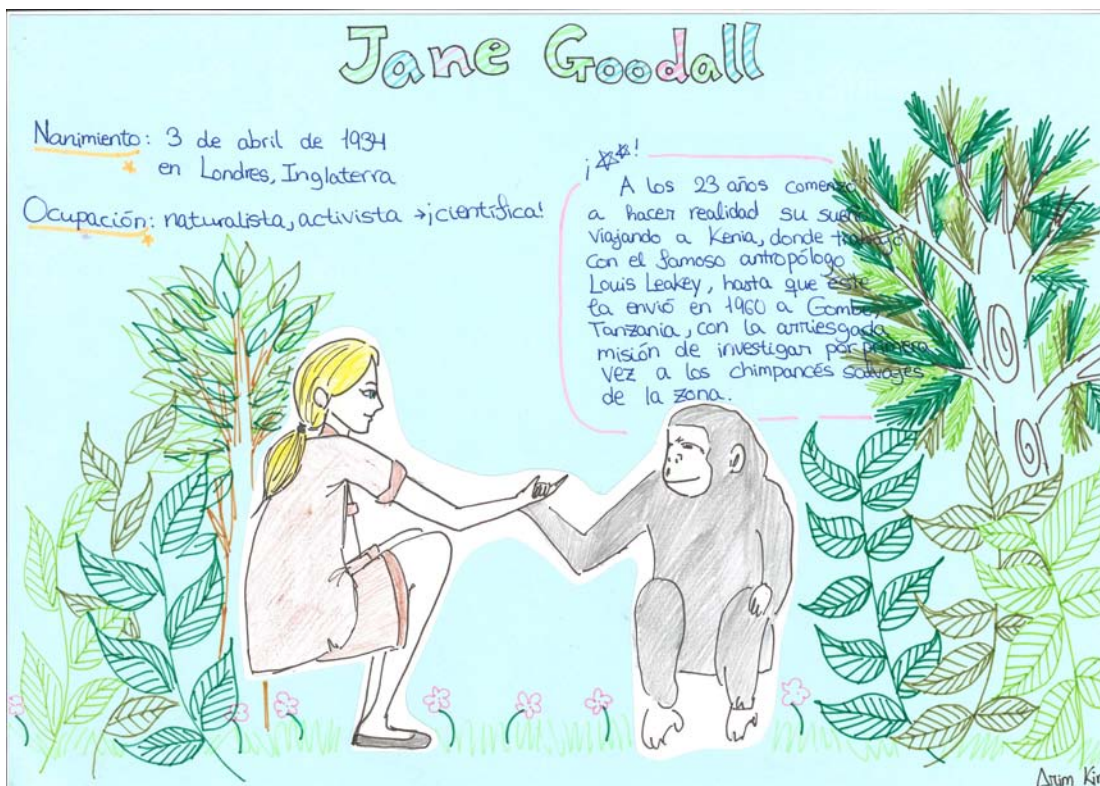 Jane Goodall
Nanimiento: 3 de abril de 1934
en Londres, Inglaterra
Ocupación: naturalista, activista → ¡científica!
¡☆☆!
A los 23 años comenzó
a hacer realidad su sueño
viajando a Kenia, donde trabajó
con el famoso antropólogo
Louis Leakey, hasta que éste
la envió en 1960 a Gombe,
Tanzania, con la arriesgada
misión de investigar por primera
vez a los chimpancés salvajes
de la zona.
Arim Kim